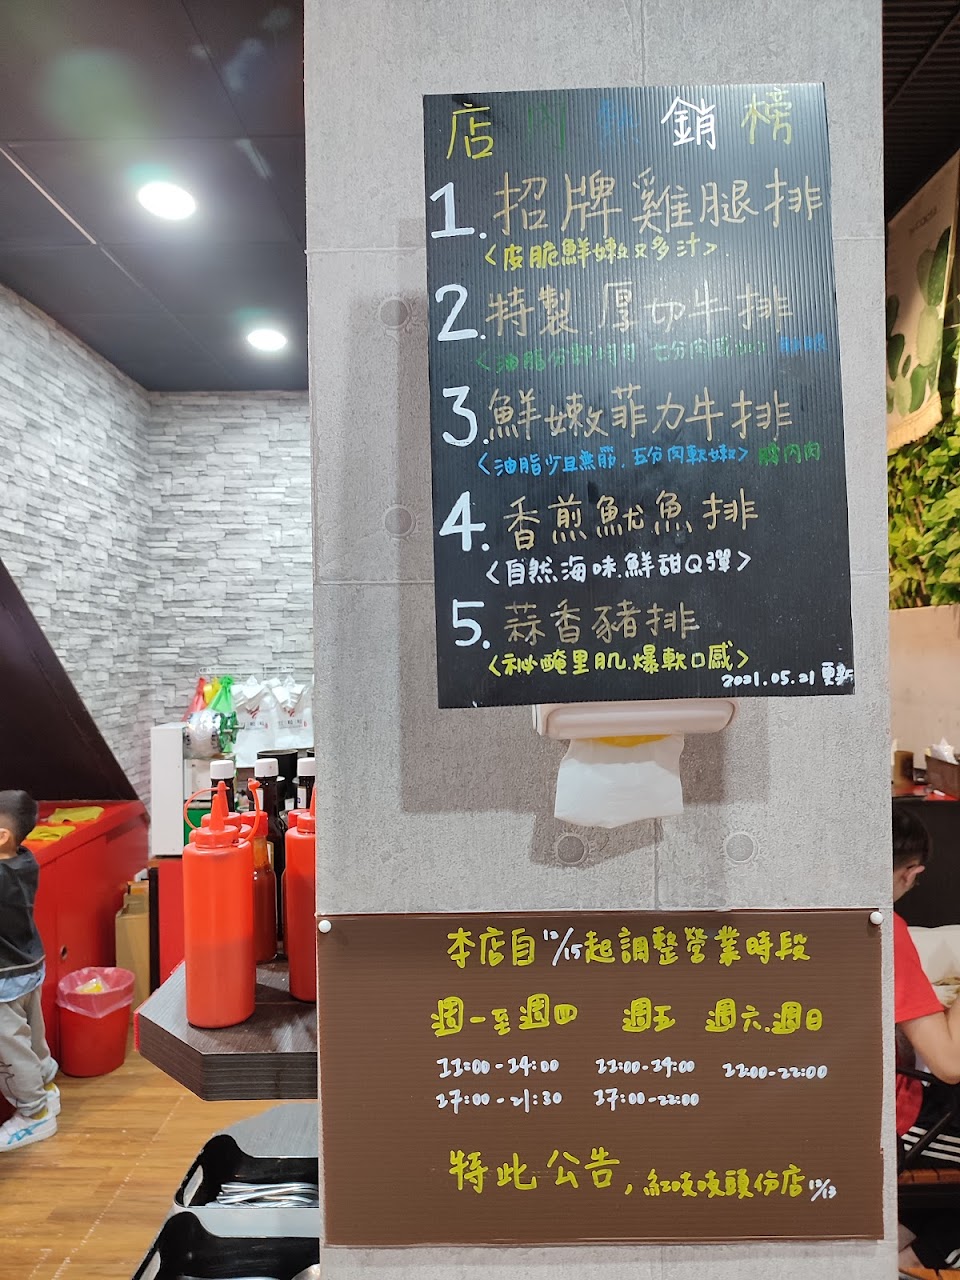 店內熱銷榜
1. 招牌雞腿排
<皮脆鮮嫩又多汁>
2. 特製厚切牛排
<油脂分部均勻 七分肉質
3. 鮮嫩菲力牛排
<油脂少且無筋, 五分肉軟嫩>
4. 香煎魷魚排
<自然海味.鮮甜Q彈>
5. 蒜香豬排
<祕醃里肌.爆軟口感>
2021.05.21更新
本店自12/15起調整營業時段
週一至週四 週五 週六.週日
11:00-14:00 11:00-14:00 11:00-22:00
17:00-21:30 17:00-22:00
特此公告, 紅吱吱頭份店12/13